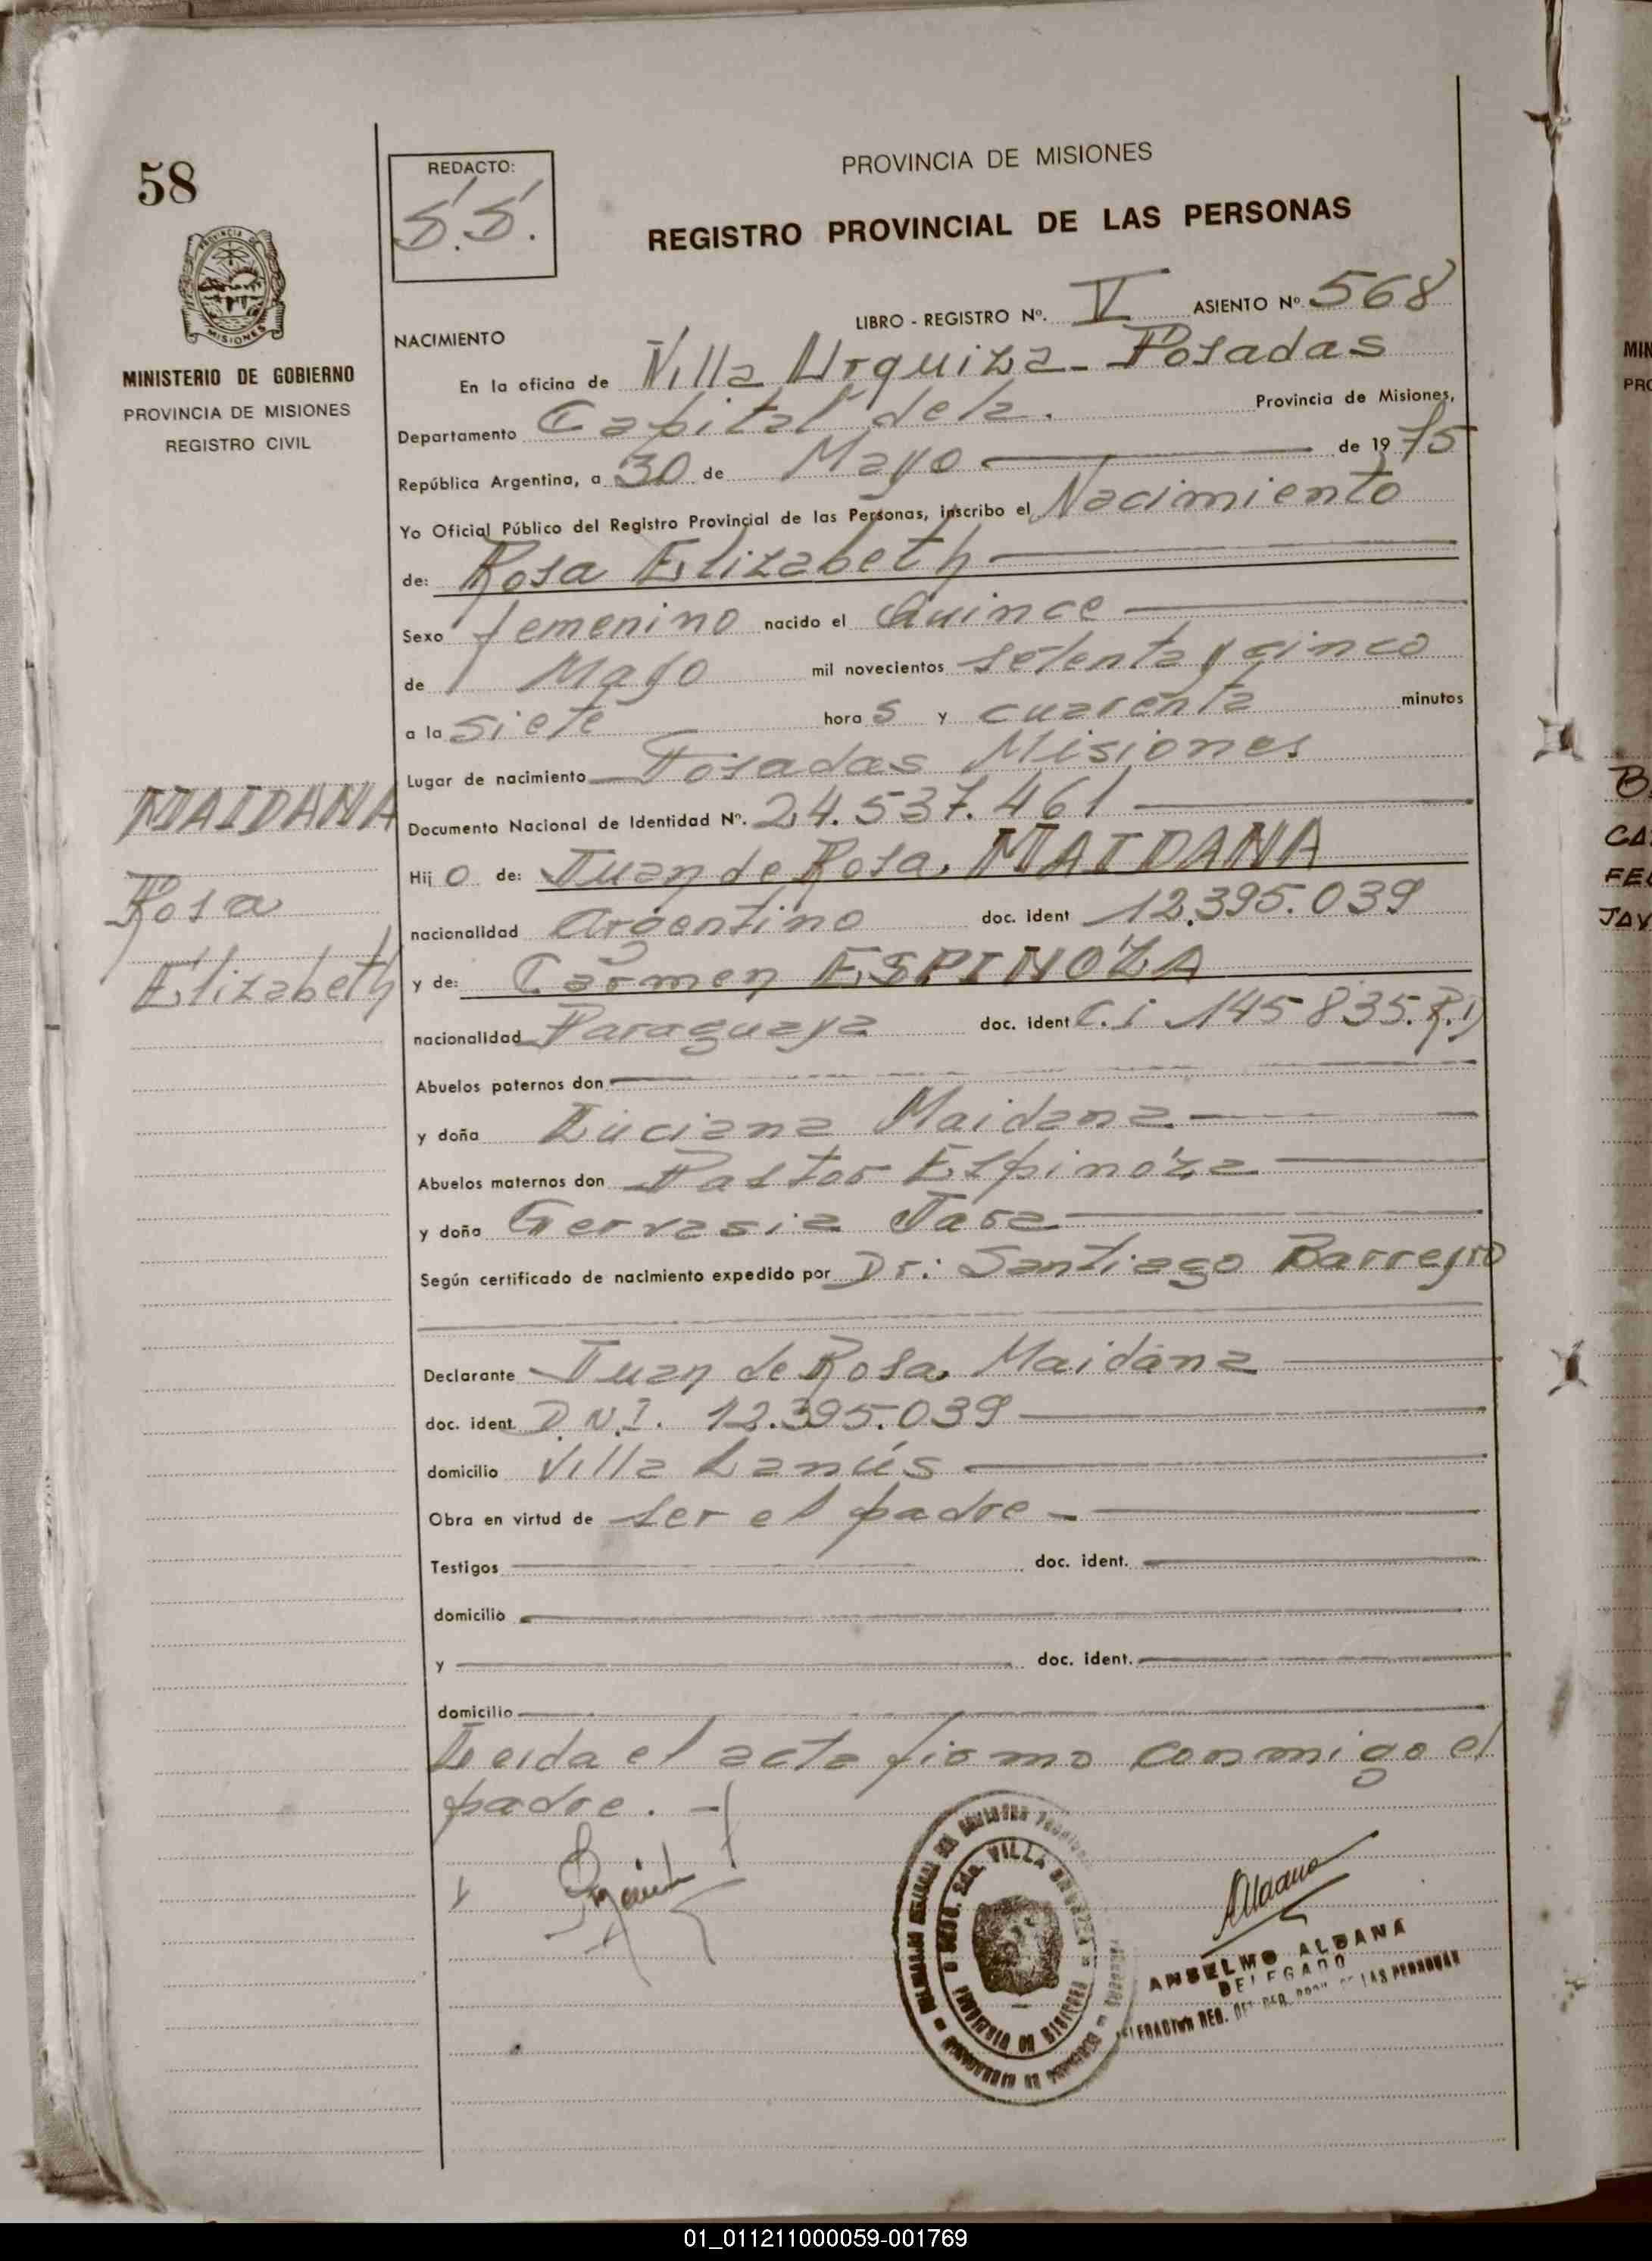 58
REDACTO:
S.S.
PROVINCIA DE MISIONES
REGISTRO PROVINCIAL DE LAS PERSONAS
PROVINCIA DE
MISIONES
MINISTERIO DE GOBIERNO
PROVINCIA DE MISIONES
REGISTRO CIVIL
LIBRO - REGISTRO Nº. V ASIENTO Nº 568
NACIMIENTO
En la oficina de Villa Urquiza - Posadas
Departamento Capital de la. Provincia de Misiones,
República Argentina, a 30 de Mayo de 1975
Yo Oficial Público del Registro Provincial de las Personas, inscribo el Nacimiento
de: Rosa Elizabeth
Sexo femenino nacido el Quince
de Mayo mil novecientos setenta y cinco
a la siete hora s y cuarenta minutos
Lugar de nacimiento Posadas Misiones
Documento Nacional de Identidad Nº. 24.537.461
MAIDANA
Rosa
Elizabeth
Hij o de: Juan de Rosa. MAIDANA
nacionalidad Argentino doc. ident 12.395.039
y de: Carmen ESPINOZA
nacionalidad Paraguaya doc. ident C.i 145835.
Abuelos paternos don
y doña Luciana Maidana
Abuelos maternos don Pastor Espinoza
y doña Gervasia Jara
Según certificado de nacimiento expedido por Dr: Santiago Barreyro
Declarante Juan de Rosa. Maidana
doc. ident. D.N.I. 12.395.039
domicilio Villa Lanús
Obra en virtud de ser el padre
Testigos doc. ident.
domicilio
y doc. ident.
domicilio
Leida el acta firmo conmigo el
padre.
VILLA URQUIZA
PROVINCIA DE MISIONES
ANSELMO ALDANA
DELEGADO
DELEGACION REG. DEL REG. PROV. DE LAS PERSONAS
B
CA
FE
JAV
MIN
PRO
01_011211000059-001769